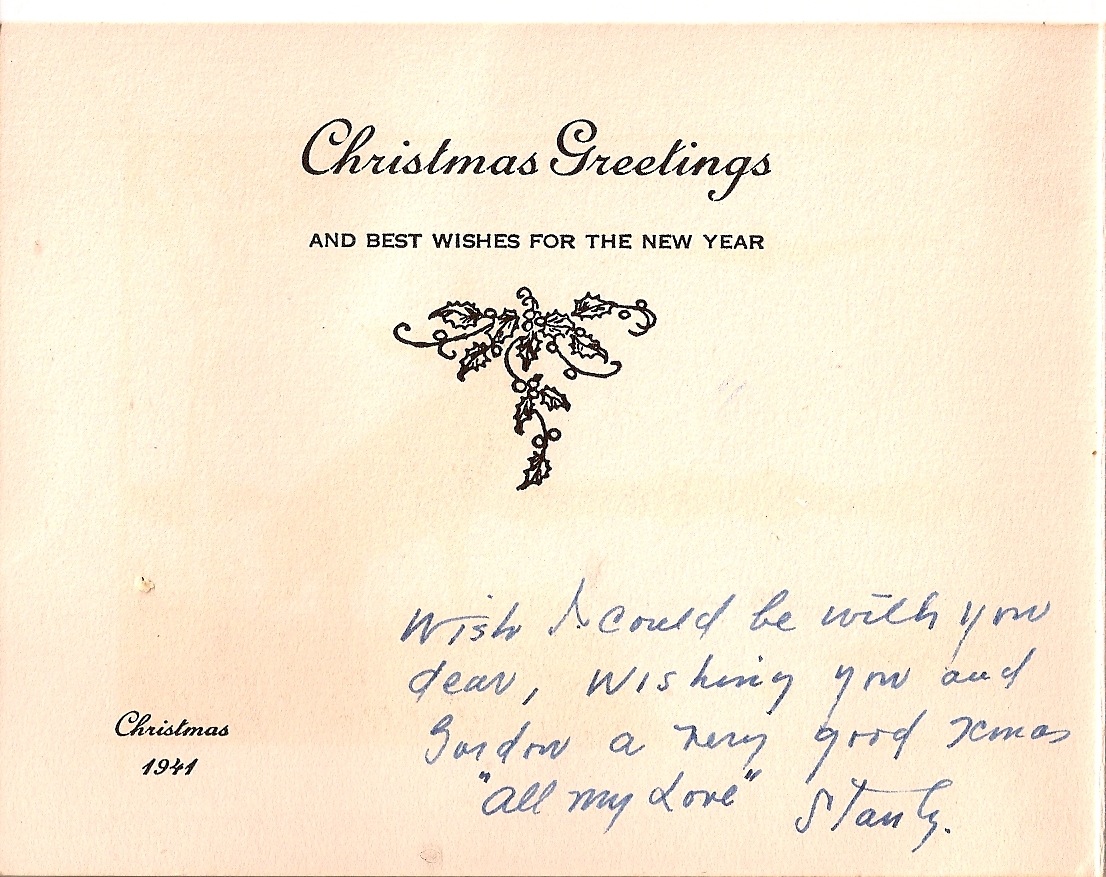 Christmas Greetings
AND BEST WISHES FOR THE NEW YEAR
Wish I could be with you
dear, Wishing you and
Gordon a very good xmas
"All my Love" Stanly.
Christmas
1941